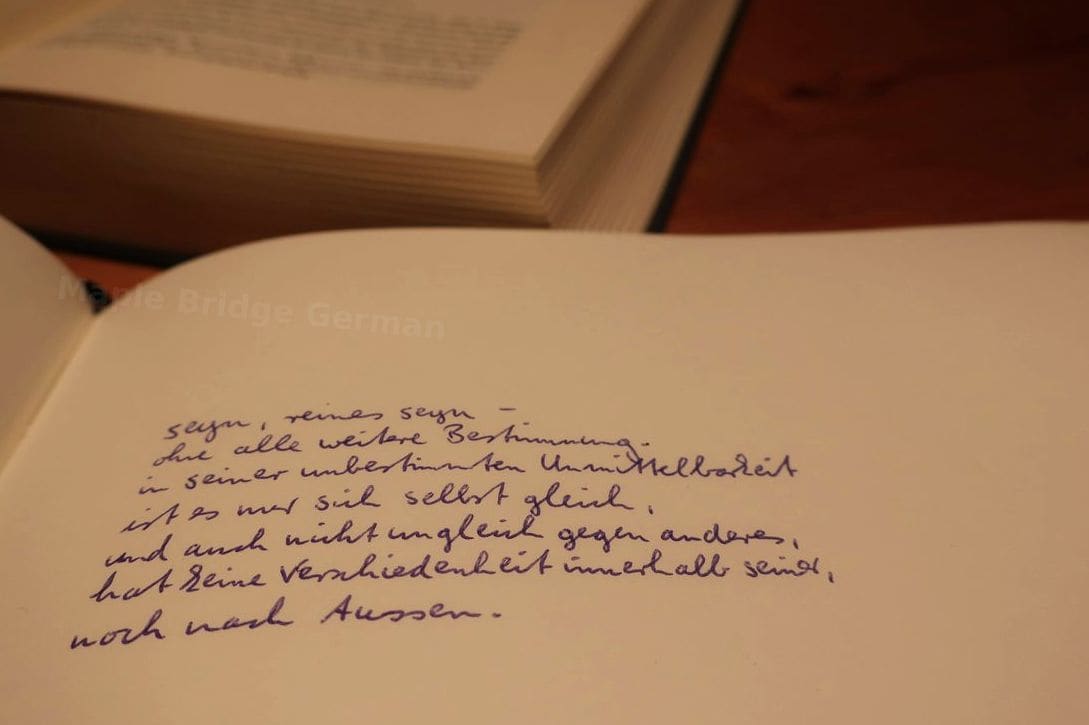 Maple Bridge German
seyn, reines seyn –
ohne alle weitere Bestimmung.
in seiner unbestimmten Unmittelbarkeit
ist es nur sich selbst gleich,
und auch nicht ungleich gegen anderes,
hat keine Verschiedenheit innerhalb seiner,
noch nach Aussen.